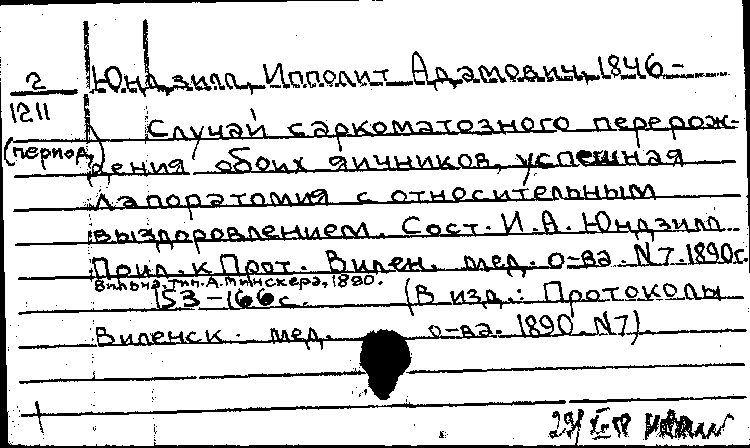 2
1211
(период.)
Юндзилл, Ипполит Адамович, 1846-
Случай саркоматозного перерож-
дения обоих яичников, успешная
лапоратомия с относительным
выздоровлением. Сост. И.А. Юндзилл
Прил. к Прот. Вилен. мед. о-ва. N7.1890г.
Вильна, тип. А. Минскера, 1890.
153-166 с. (В изд.: Протоколы
Виленск. мед. о-ва. 1890. N7).